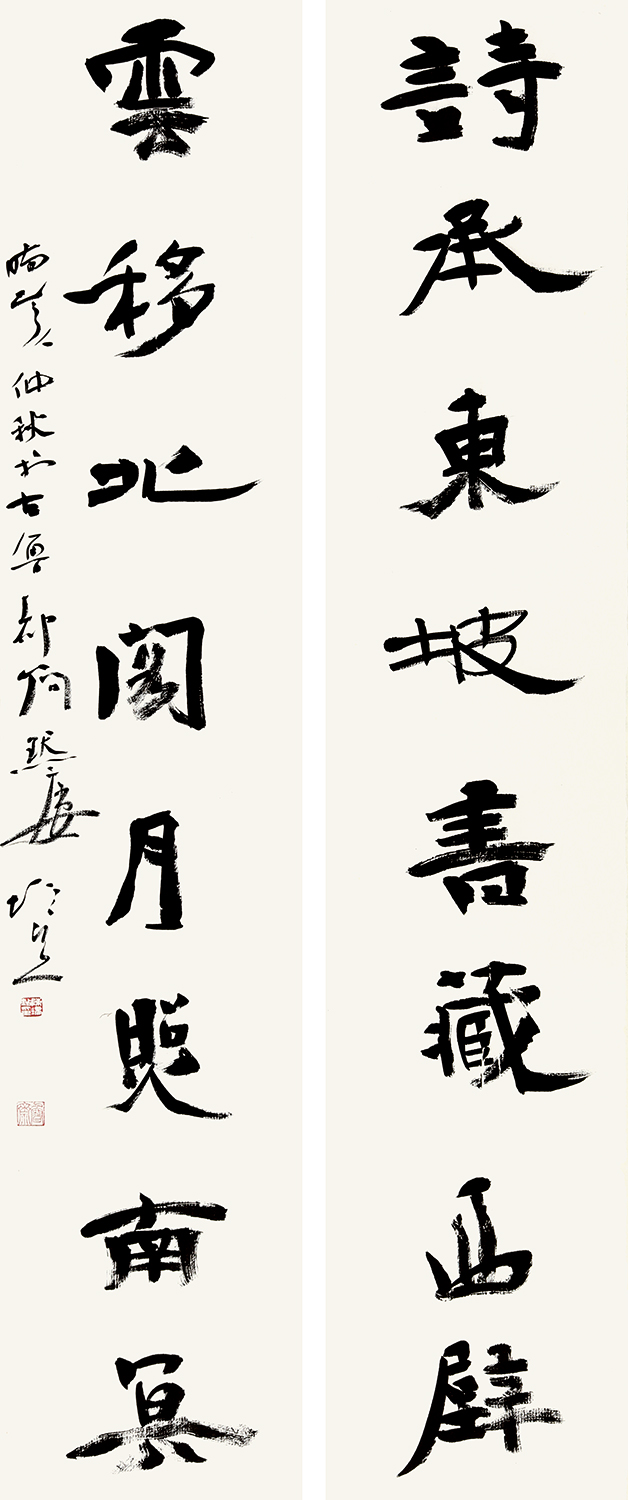 詩承東坡書藏西壁
雲移北閣月照南冥
仲秋於古